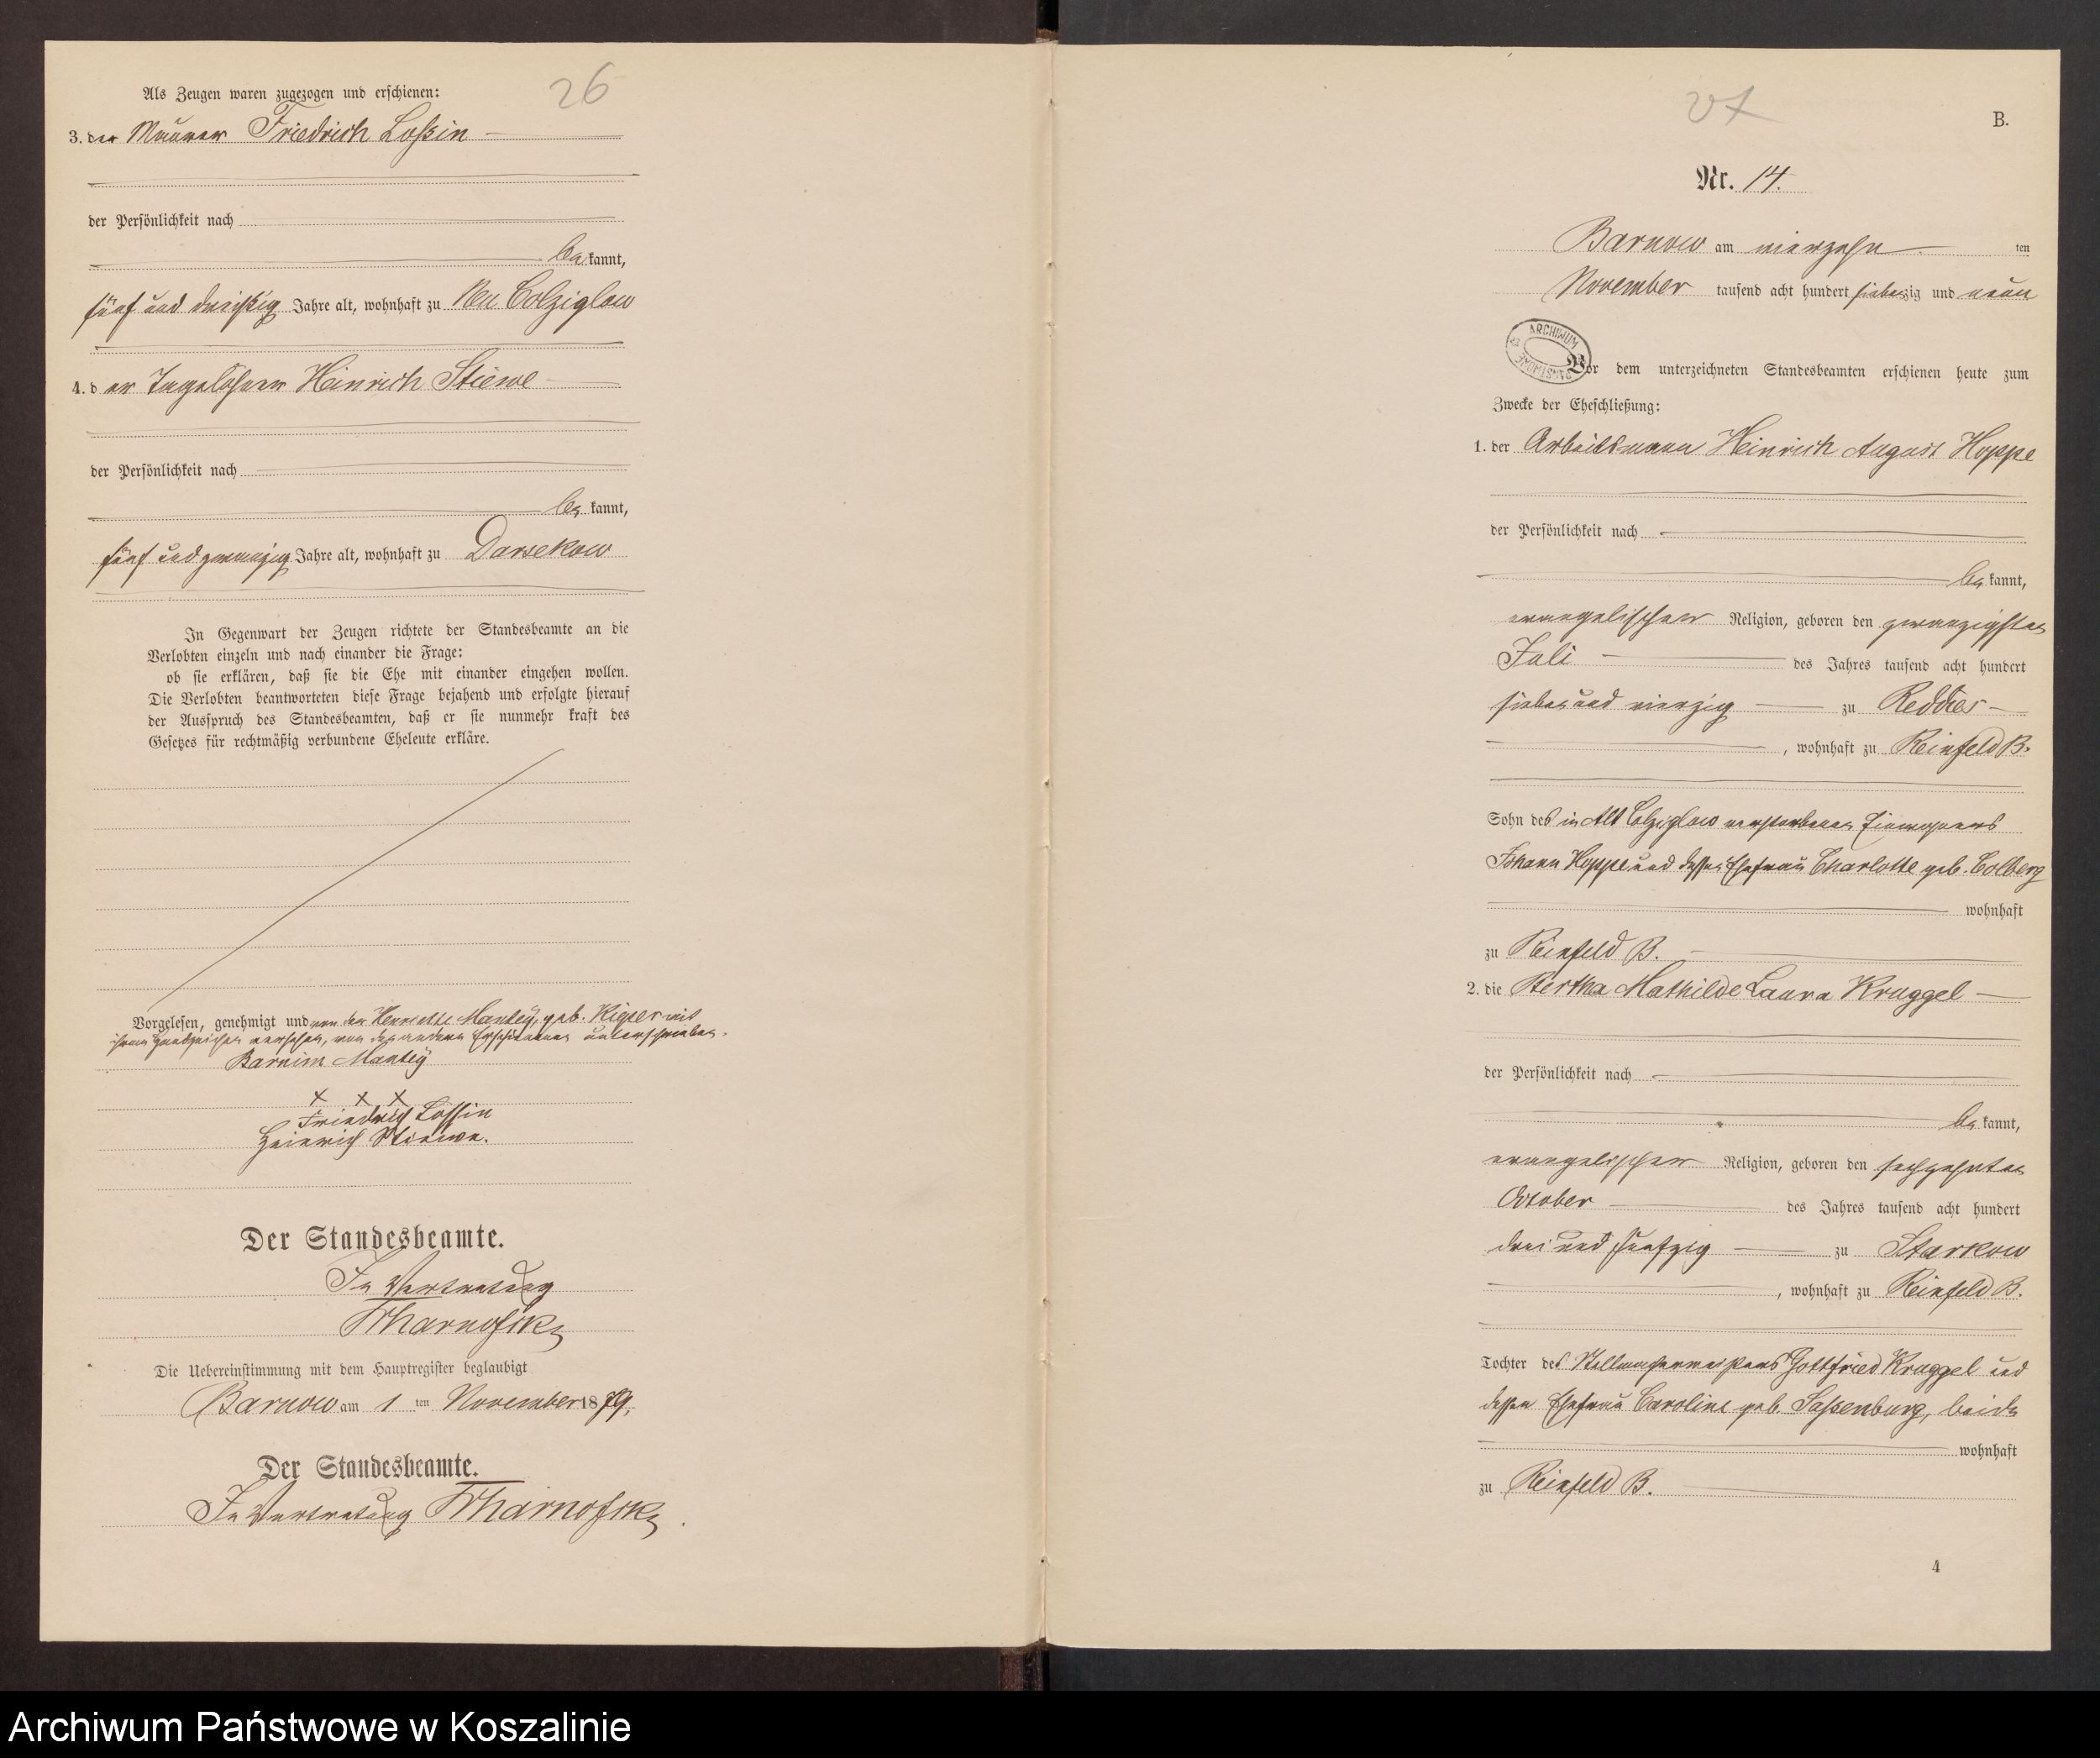 26
Als Zeugen waren zugezogen und erschienen:
3. der Maurer Friedrich Loßin
der Persönlichkeit nach
bekannt,
fünf und dreißig Jahre alt, wohnhaft zu Neu Colziglow
4. der Tagelöhner Heinrich Stiewe
der Persönlichkeit nach
bekannt,
fünf und zwanzig Jahre alt, wohnhaft zu Darsekow
In Gegenwart der Zeugen richtete der Standesbeamte an die
Verlobten einzeln und nach einander die Frage:
ob sie erklären, daß sie die Ehe mit einander eingehen wollen.
Die Verlobten beantworteten diese Frage bejahend und erfolgte hierauf
der Ausspruch des Standesbeamten, daß er sie nunmehr kraft des
Gesetzes für rechtmäßig verbundene Eheleute erkläre.
Vorgelesen, genehmigt und von der Henriette Mantey, geb. mit
ihrem Handzeichen versehen, von den andern Erschienenen unterschrieben.
Barnim Mantey
x x x
Friedrich Lossin
Heinrich Stiewe.
Der Standesbeamte.
In Vertretung
Die Uebereinstimmung mit dem Hauptregister beglaubigt
Barnow am 1 ten November 1879.
Der Standesbeamte.
In Vertretung
B.
Nr. 14.
Barnow am vierzehn ten
November tausend acht hundert siebenzig und neun
ARCHIWUM PAŃSTWOWE
Vor dem unterzeichneten Standesbeamten erschienen heute zum
Zwecke der Eheschließung:
1. der Arbeitsmann Heinrich August Hoppe
der Persönlichkeit nach
bekannt,
evangelischer Religion, geboren den zwanzigsten
Juli des Jahres tausend acht hundert
sieben und vierzig zu Reddies
, wohnhaft zu Reinfeld B.
Sohn des in Alt Colziglow verstorbenen Einwohners
Johann Hoppe und dessen Ehefrau Charlotte geb. Colberg
wohnhaft
zu Reinfeld B.
2. die Bertha Mathilde Laura Kruggel
der Persönlichkeit nach
bekannt,
evangelischer Religion, geboren den sechzehnten
October des Jahres tausend acht hundert
drei und funfzig zu Starkow
, wohnhaft zu Reinfeld B.
Tochter des Stellmachermeisters Gottfried Kruggel und
dessen Ehefrau Caroline geb. Saßenburg, beide
wohnhaft
zu Reinfeld B.
4
Archiwum Państwowe w Koszalinie